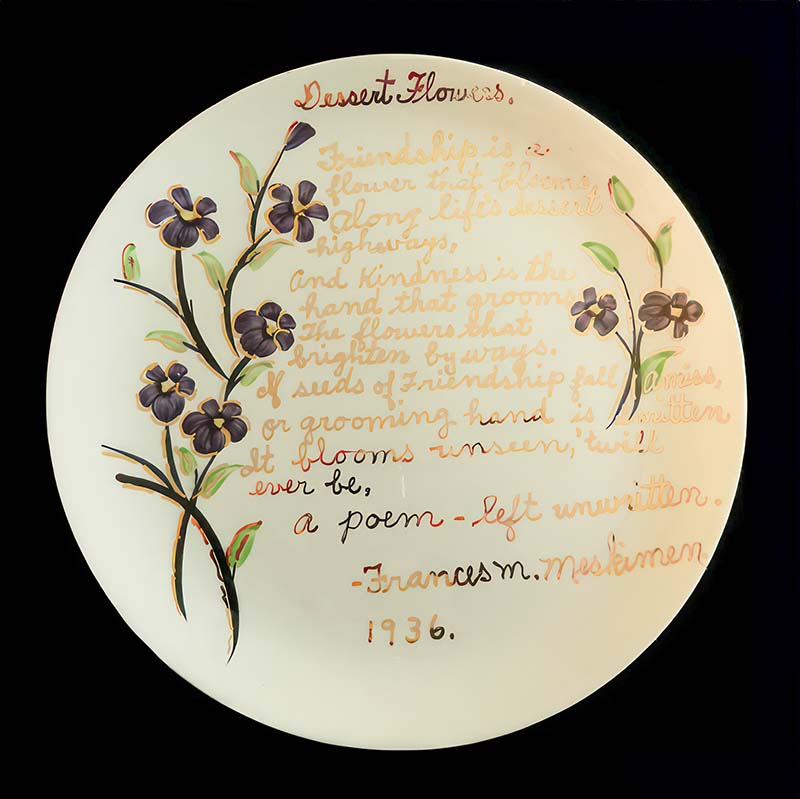 Dessert Flowers.
Friendship is a
flower that blooms,
Along life's dessert
highways,
And Kindness is the
hand that grooms
The flowers that
brighten by ways.
If seeds of Friendship fall amiss,
or grooming hand is written
It blooms unseen, 'twill
ever be,
a poem - left unwritten.
-Frances M. Meskimen.
1936.